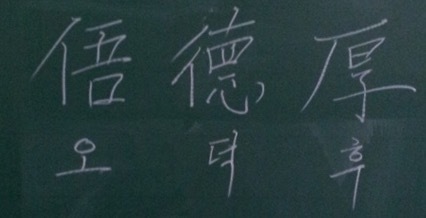 悟德厚
오덕후